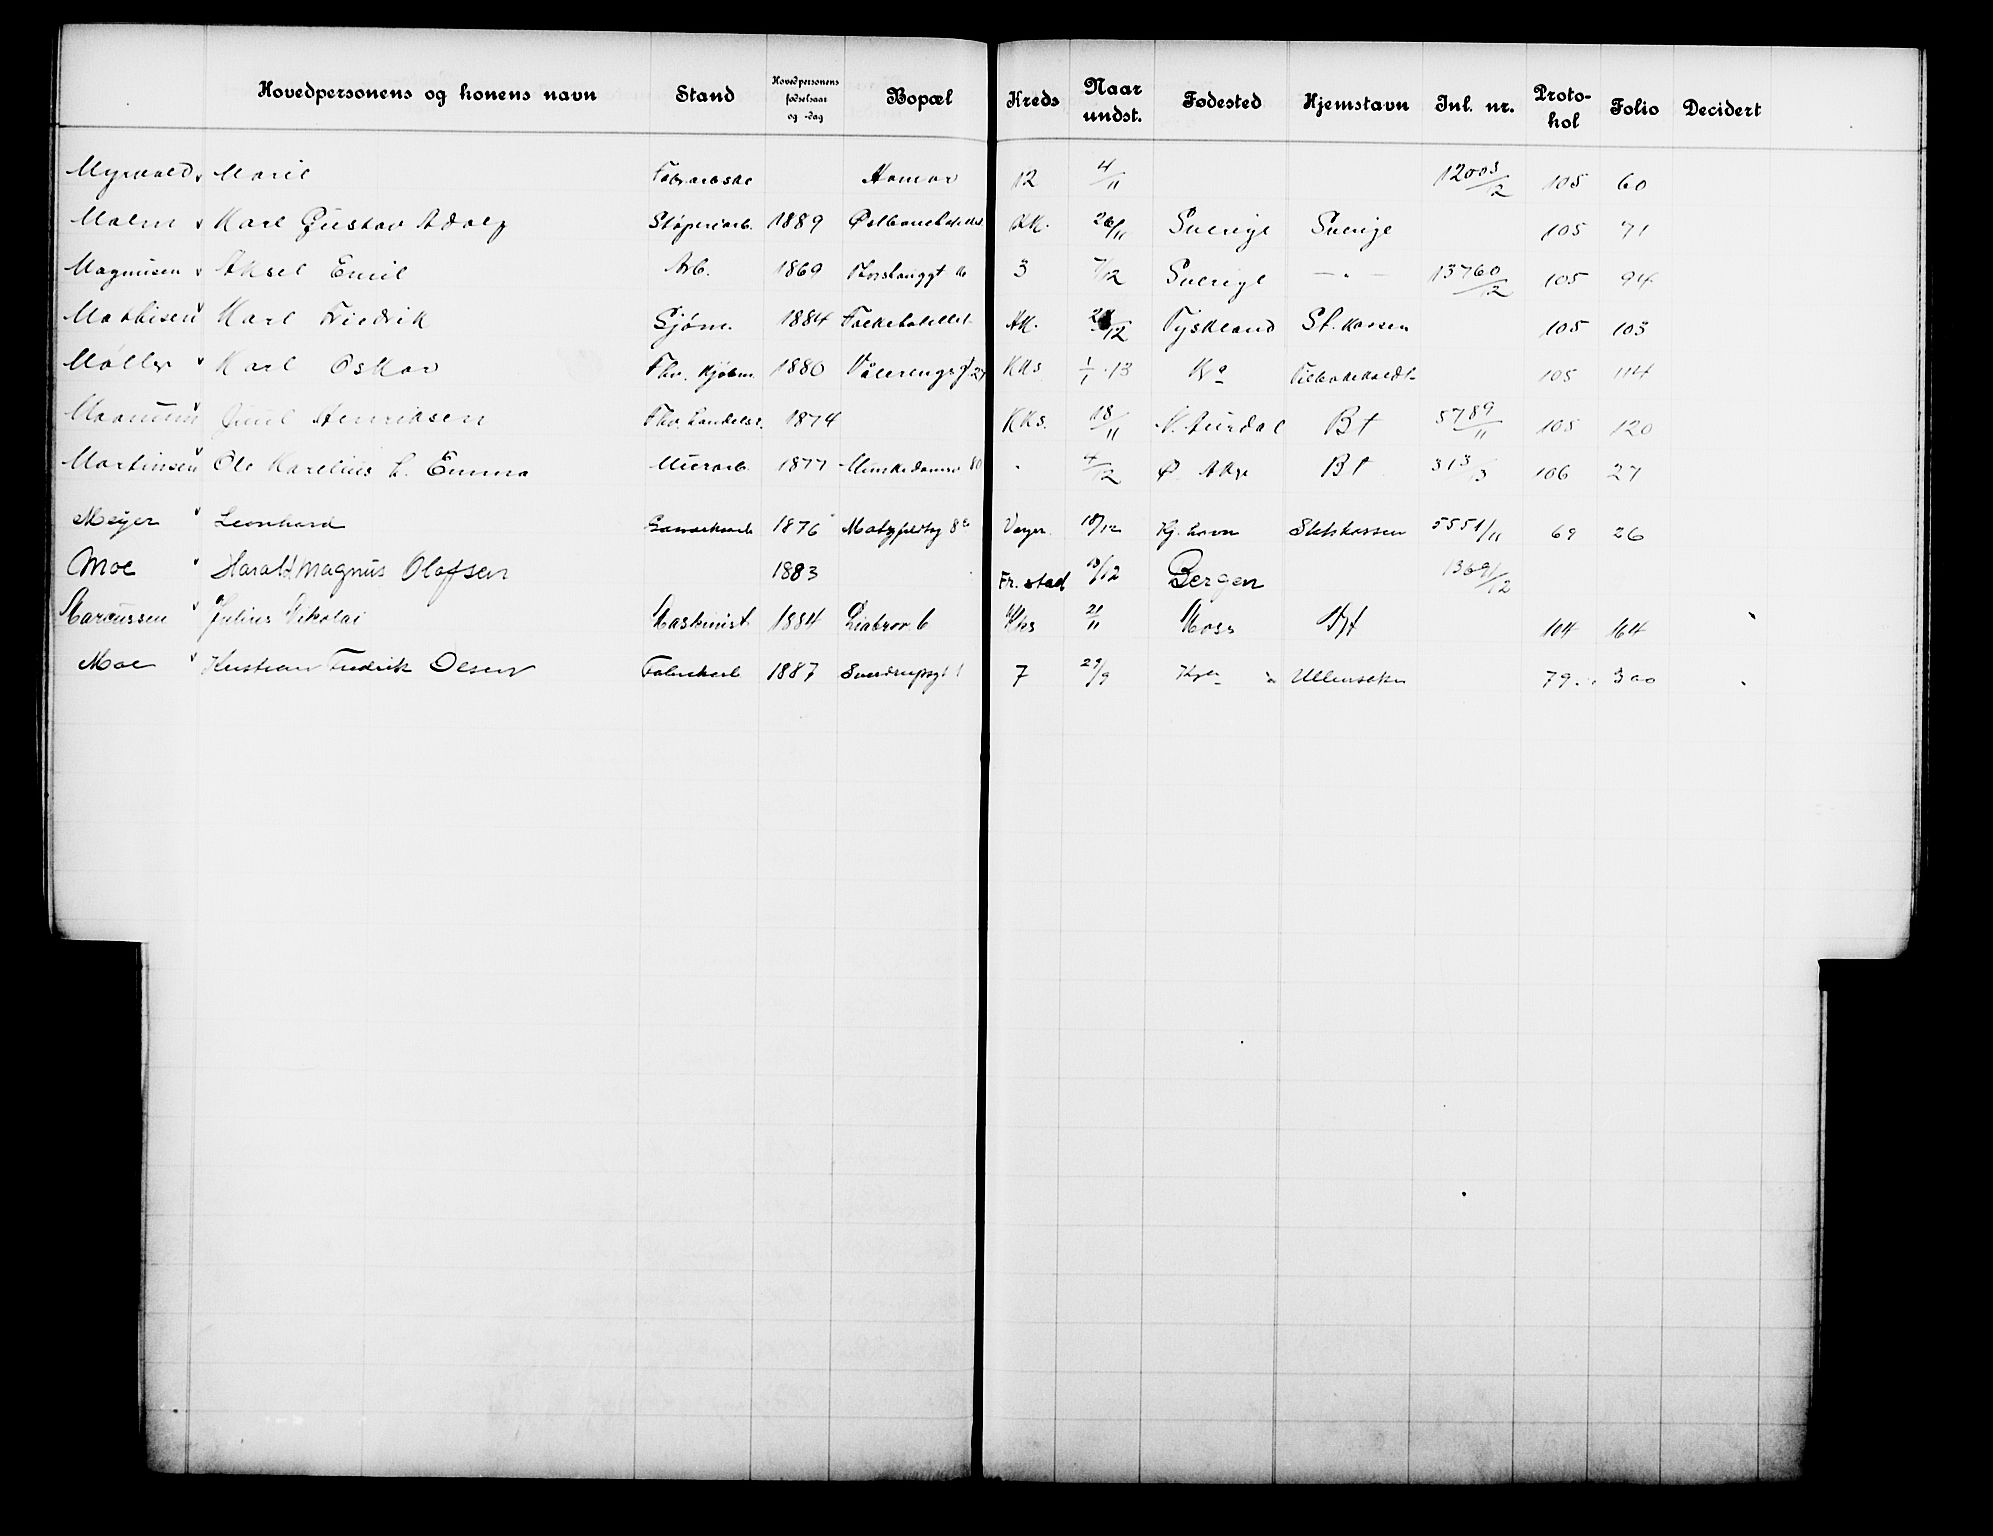 Hovedpersonens og konens navn Stand Hovedpersonens fødselsaar og -dag Bopæl Kreds Naar undst. Fødested Hjemstavn Inl. nr. Protokol Folio Decidert
Myrvold v Marie Fabrarbske Hamar 12 4/11 12003/12 105 60
Malm v Karl Gustav Adolf Støperiarb. 1889 Østbanehotellet 26/11 Sverige Sverige 105 71
Magnusen v Aksel Emil Arb. 1869 3 7/12 Sverige — " — 13760/12 105 94
Mathisen v Karl Fredrik Sjøm. 1884 Folkehotellet AK. /12 Tyskland St. kassen 105 103
Møller v Karl Oskar Fhv. Kjøbm. 1880 Vålerengsgt 27 KKs 1/1 13 Kra 105 114
v Juul Henriksen Fhv. handelsr. 1874 KKs. 18/11 N. Aurdal Bt 5789/11 105 120
Martinsen v Ole Karelius h. Emma Murarb. 1877 Munkedamsv 80 " 4/12 Ø. Aker Bt 313/3 106 27
Meyer v Leonhard 1876 18/12 Kj. havn Statskassen 5551/11 69 26
Moe v Harald Magnus Olafsen 1883 Fr. stad 13/12 Bergen 1369/12
Marcussen v Julius Nikolai Maskinist 1884 Liabrov 6 KKs 21/11 Moss 104 164
Moe v Kristian Fredrik Olsen Fabrikarb 1887 Sverdrupsgt 1 7 29/9 Ullensaker 79 300